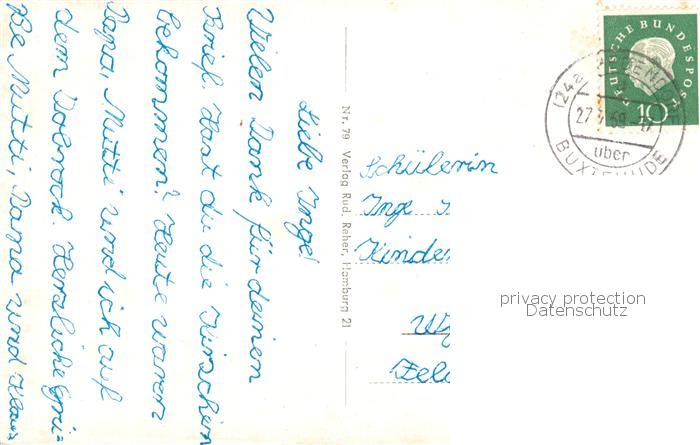 Liebe Inge!
Vielen Dank für deinen
Brief. Hast du die Kirschen
bekommen? Heute waren
Papa, Mutti und ich auf
dem Dobrock. Herzliche Grü=
ße Mutti, Papa und Klaus
Nr. 79 Verlag Rud. Reher, Hamburg 21
Schülerin
Inge
Kinde
DEUTSCHE BUNDESPOST
10
(24a
27.
über
BUXTEHUDE
privacy protection
Datenschutz